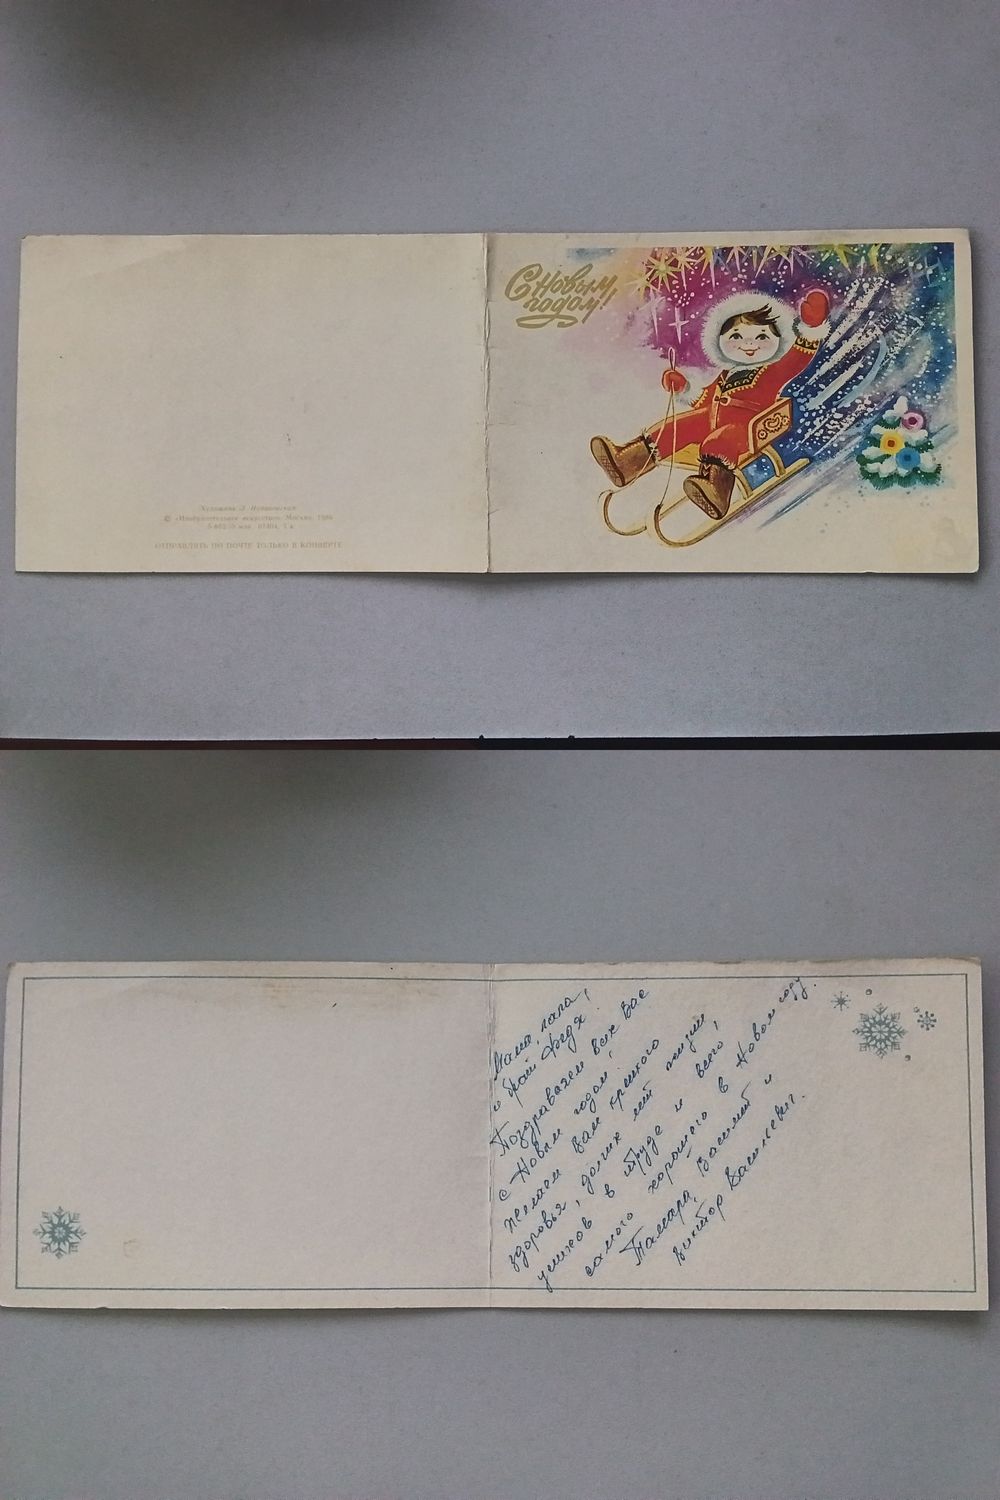 С Новым
годом!
Художник Л.
© «Изобразительное искусство». Москва. 1986
ОТПРАВЛЯТЬ ПО ПОЧТЕ ТОЛЬКО В КОНВЕРТЕ
Мама, папа,
и брат Федя!
Поздравляем всех Вас
с Новым годом!
Желаем Вам крепкого
здоровья, долгих лет жизни
успехов в труде и всего,
самого хорошего в Новом году.
Тамара, Василий и
Виктор Васильевич.